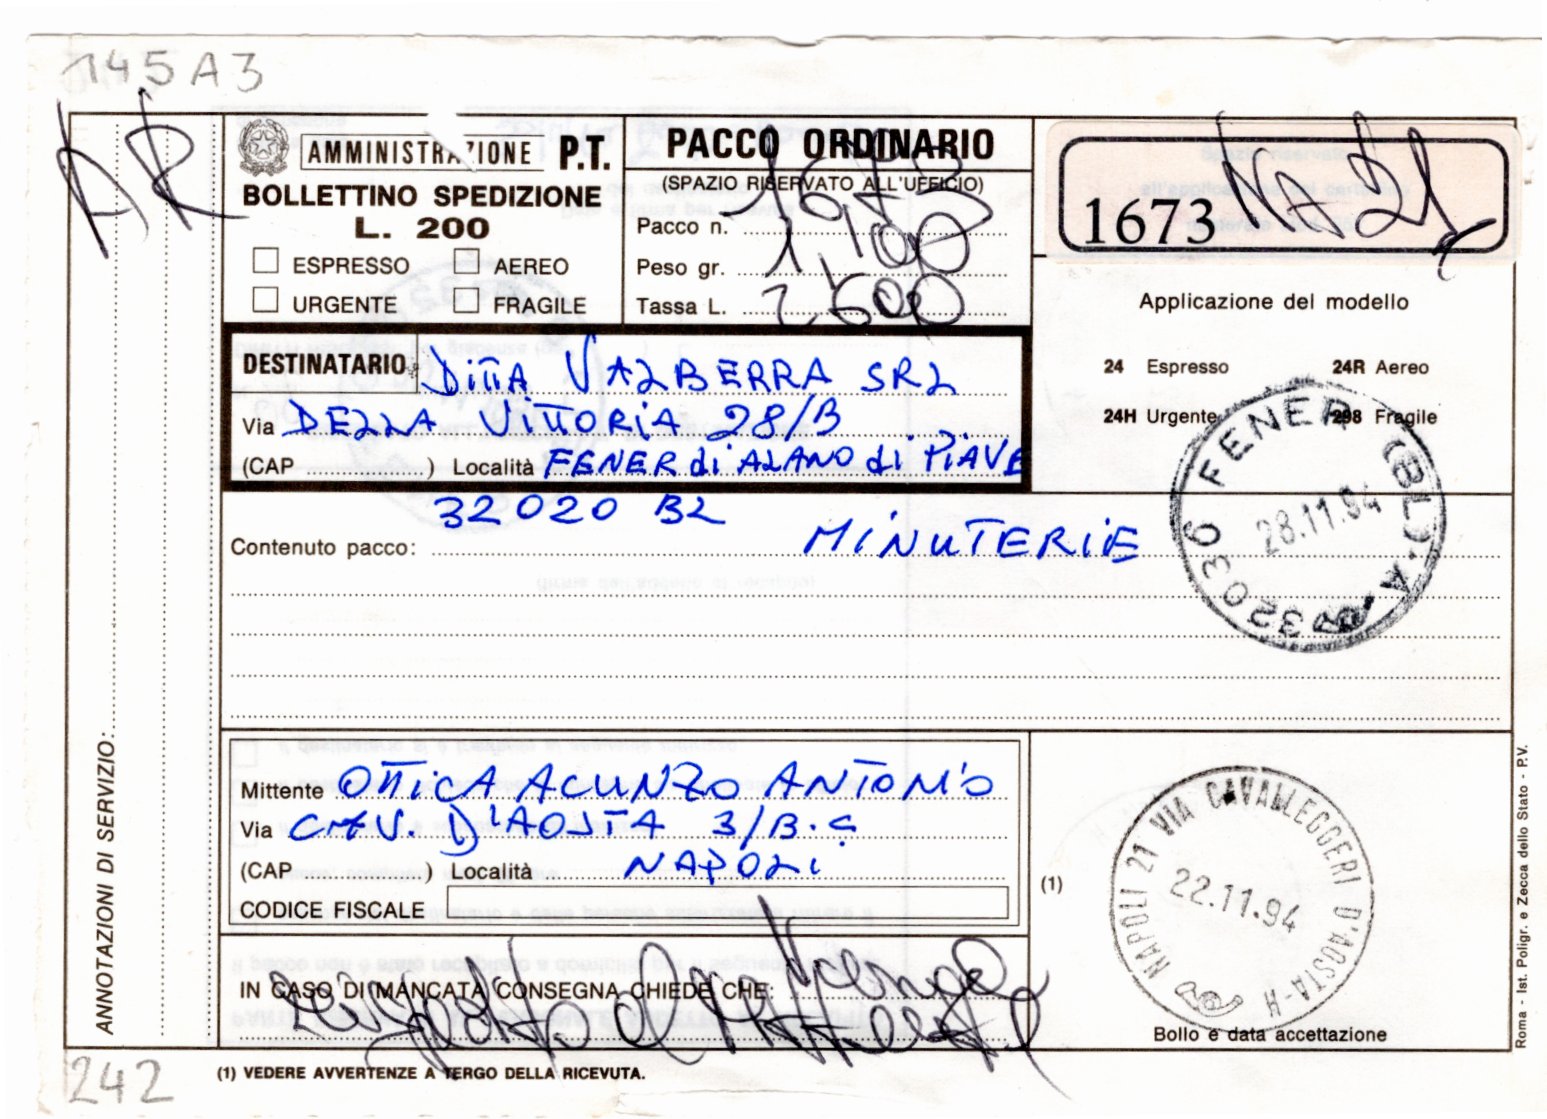 145A3
AR
AMMINISTRAZIONE P.T.
BOLLETTINO SPEDIZIONE
L. 200
ESPRESSO AEREO
URGENTE FRAGILE
PACCO ORDINARIO
(SPAZIO RISERVATO ALL'UFFICIO)
Pacco n. 1673
Peso gr. 1,100
Tassa L. 2,600
1673 NA 21
Applicazione del modello
24 Espresso 24R Aereo
24H Urgente 298 Fragile
DESTINATARIO DiTTA VALBERRA SRL
Via DELLA ViTTORiA 28/B
(CAP ) Località FENER di ALANO di PiAVE
32020 BL
Contenuto pacco: MiNUTERiE
32036 FENER (BL)·A
28.11.94
Mittente OTTiCA ACUNZO ANTONiO
Via CAV. D'AOSTA 3/B.C
(CAP ) Località NAPOLi
CODICE FISCALE
(1)
NAPOLI 21 VIA CAVALLEGGERI D'AOSTA-A
22.11.94
Bollo e data accettazione
IN CASO DI MANCATA CONSEGNA CHIEDE CHE:
ANNOTAZIONI DI SERVIZIO:
Roma - Ist. Poligr. e Zecca dello Stato - P.V.
242
(1) VEDERE AVVERTENZE A TERGO DELLA RICEVUTA.